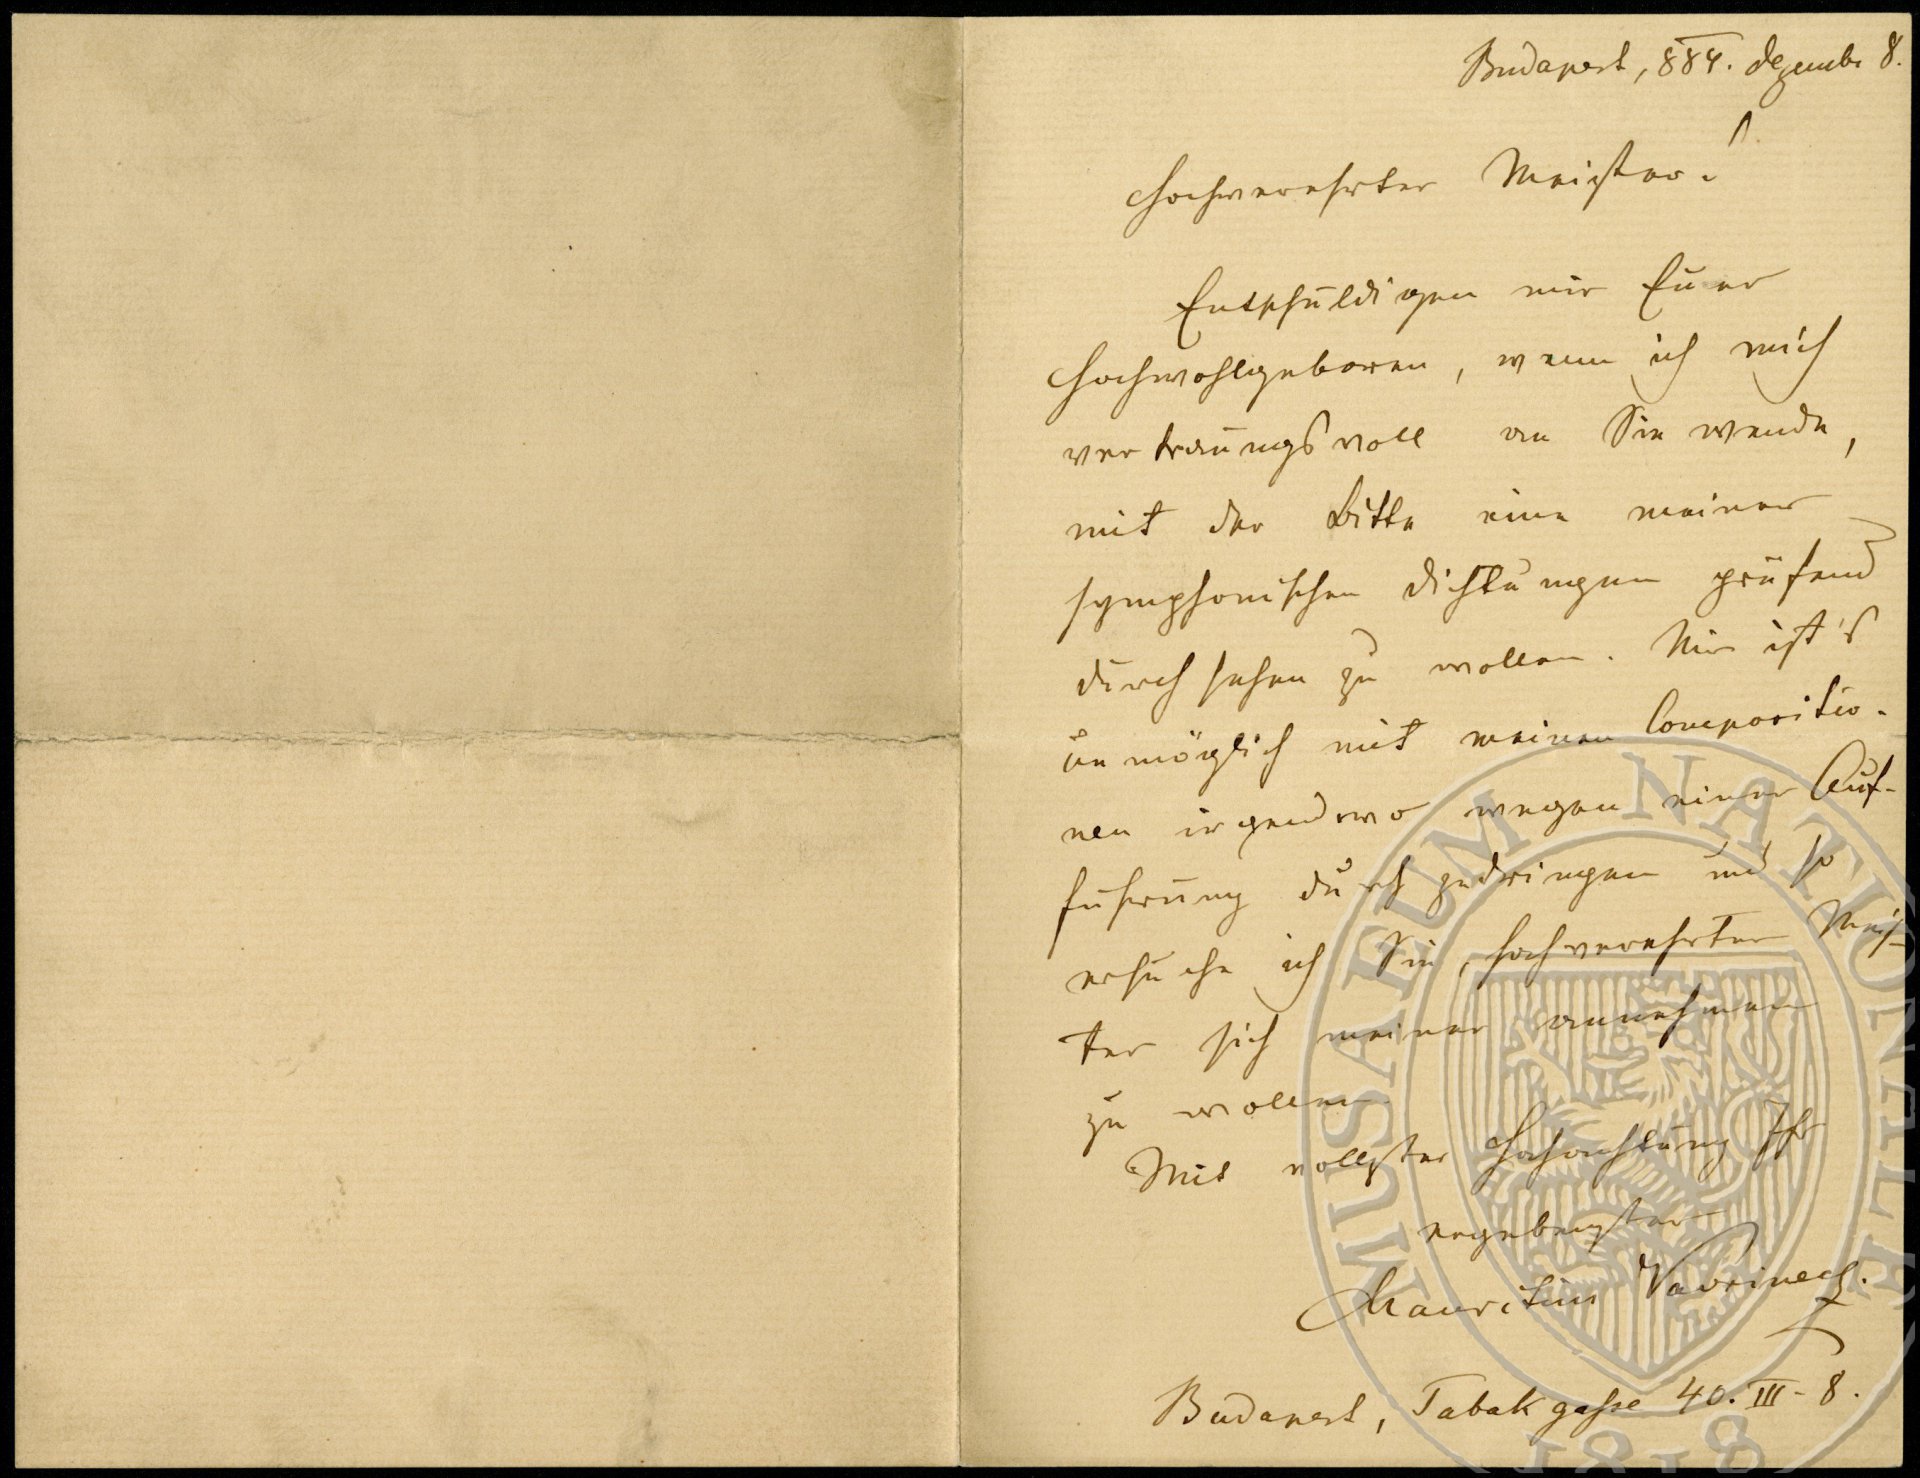 Budapest, 884. Dezember 8.
Hochverehrter Meister!
Entschuldigen mir Euer
Hochwohlgeboren, wenn ich mich
vertrauungsvoll an Sie wende,
mit der Bitte eine meiner
symphonischen Dichtungen prüfend
durchsehen zu wollen. Mir ist's
unmöglich mit meinen Compositio-
nen irgendwo wegen einer Auf-
führung durchzudringen und so
ersuche ich Sie, hochverehrter Meis-
ter sich meiner annehmen
zu wollen
Mit vollster Hochachtung Ihr
ergebenster
Mauritius Vavrinecz.
Budapest, Tabakgasse 40. III - 8.
MUSAEUM NATIONALE
1818